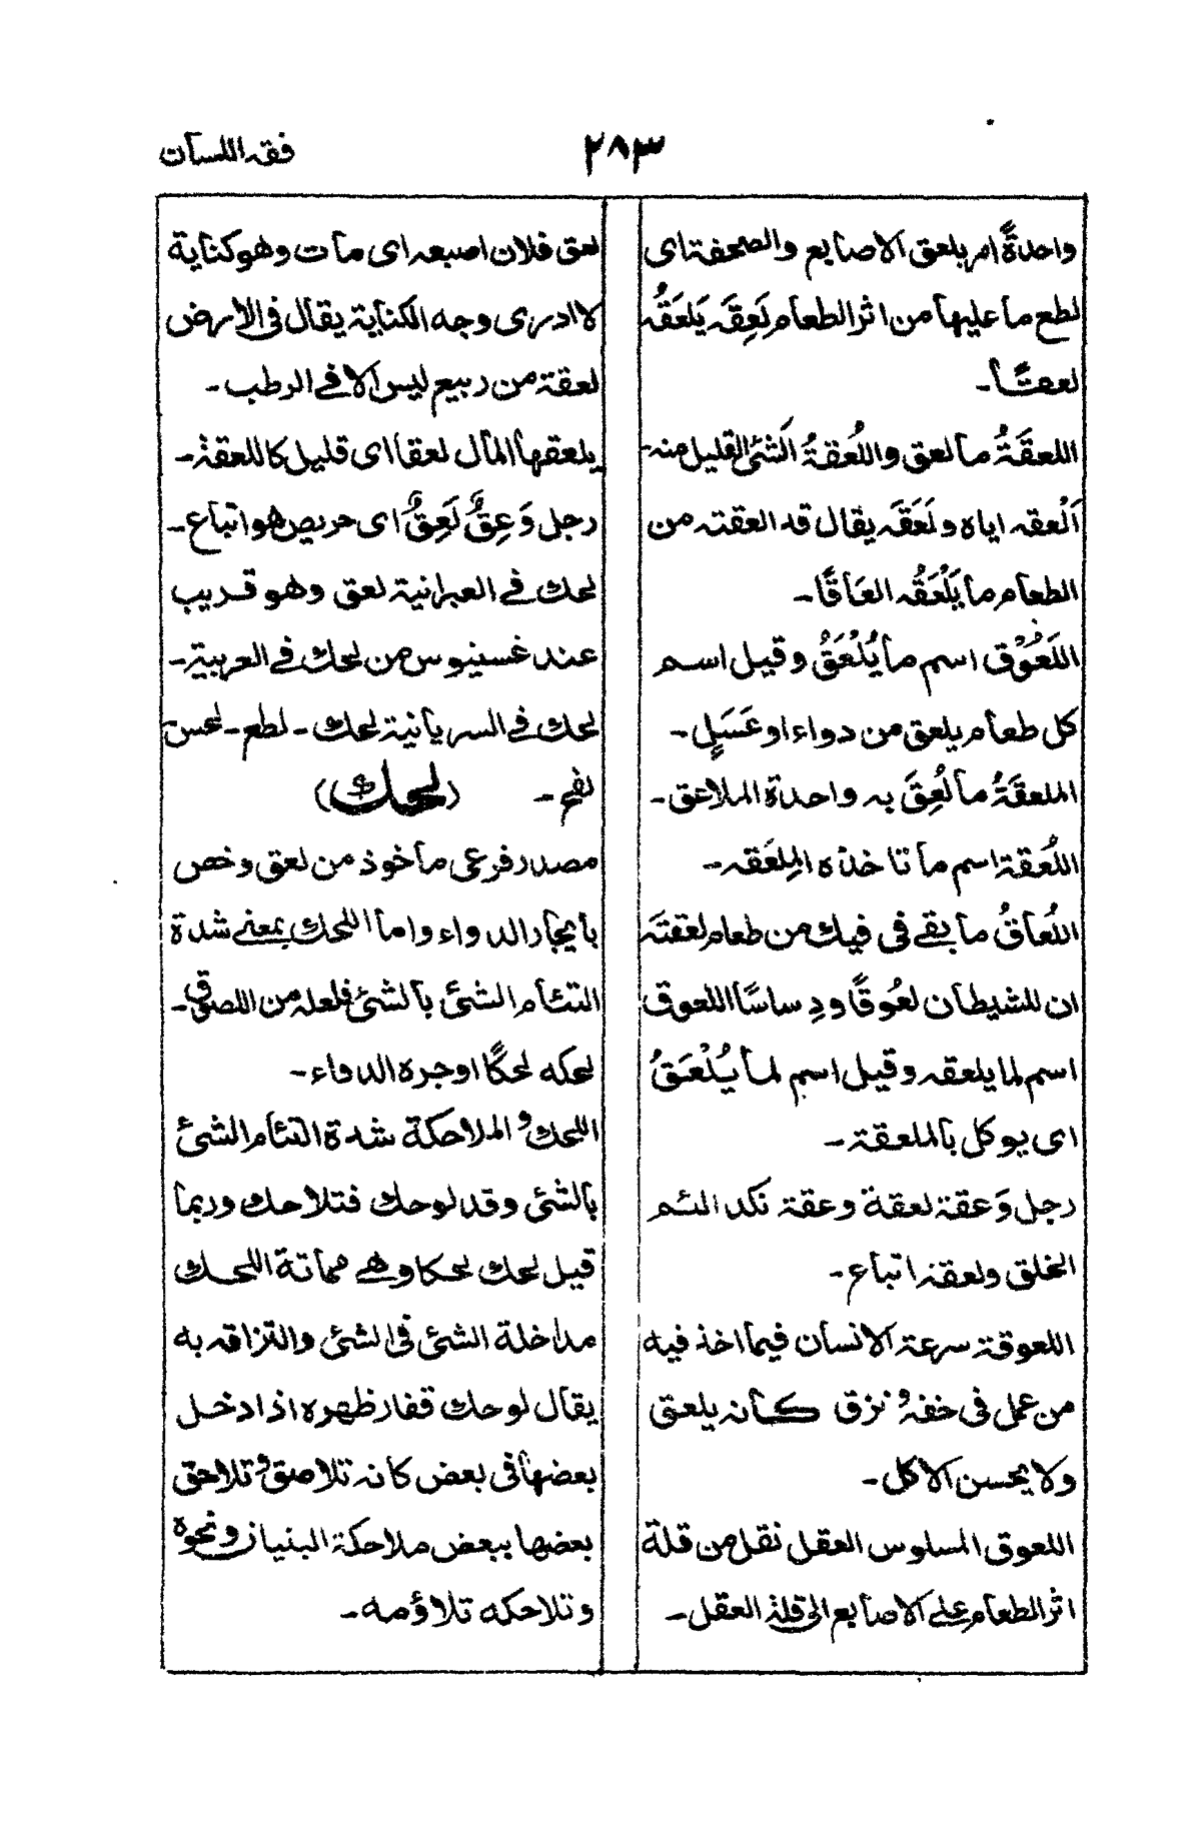 فقہ اللسان
٢٨٣
واحدةً ام يلعق الاصابع والصحفة اى
لطع ما عليها من اثر الطعام لَعِقَہ يَلعَقُہ
لعقًا۔
اللعقَةُ ما لعق واللُعقةُ الَشئ القليل منہ۔
اَلْعقہ اياه ولَعَقَہ يقال قد العقتہ من
الطعام ما يَلْعَقُہ العَاقًا۔
اللَعُوْق اسم ما يُلْعَقُ وقيل اسم
كل طعام يلعق من دواء او عَسَلٍ۔
الملعقَةُ ما لُعِقَ بہ واحدة الملاعق۔
اللُعقة اسم ما تاخذه المِلعَقہ۔
اللُعاقُ ما بقے فى فيك من طعام لعقتَہ
ان للشيطان لعُوقًا ودِساسًا اللعوق
اسم لما يلعقہ وقيل اسم لما يُلْعَقُ
اى يوكل بالملعقة۔
رجل وَعقة لعقة وعقة نكد لئم
الخلق ولعقة اتباع۔
اللعوقة سرعة الانسان فيما اخذ فيه
من عمل فى خفہ و نزق كأنہ يلعق
ولا يحسن الاكل۔
اللعوق المسلوس العقل نقل من قلة
اثر الطعام علے الاصابع الى قلة العقل۔
لعق فلان اصبعہ اى مات وهو كناية
لا ادرى وجه الكناية يقال فى الأرض
لعقة من ربيع ليس الا فے الرطب۔
يلعقها المال لعقا اى قليل كاللعقة۔
رجل وَعِقٌ لَعِقٌ اى حريص هو اتباع۔
لحك فے العبرانية لعق وهو قريب
عند غسنيوس من لحك فے العربية۔
لحك فے السريانية لحك۔ لطع۔ لحس
لفح۔ (لحك)
مصدر فرعى ماخوذ من لعق وخص
بايجار الدواء واما اللحك بمعنے شدة
التئام الشئ بالشئ فلعلہ من اللصق۔
لحكه لحكًا اوجره الدواء۔
اللحك و الملاحكة شدة التئام الشئ
بالشئ وقد لوحك فتلاحك وربما
قيل لحك لحكا وهے مماتة اللحك
مداخلة الشئ فى الشئ والتزاقہ به
يقال لوحك قفار ظهره اذا دخل
بعضها فى بعض كانہ تلاصق و تلاحق
بعضها ببعض ملاحكة البنيان ونحوه
وتلاحكه تلاؤمه۔